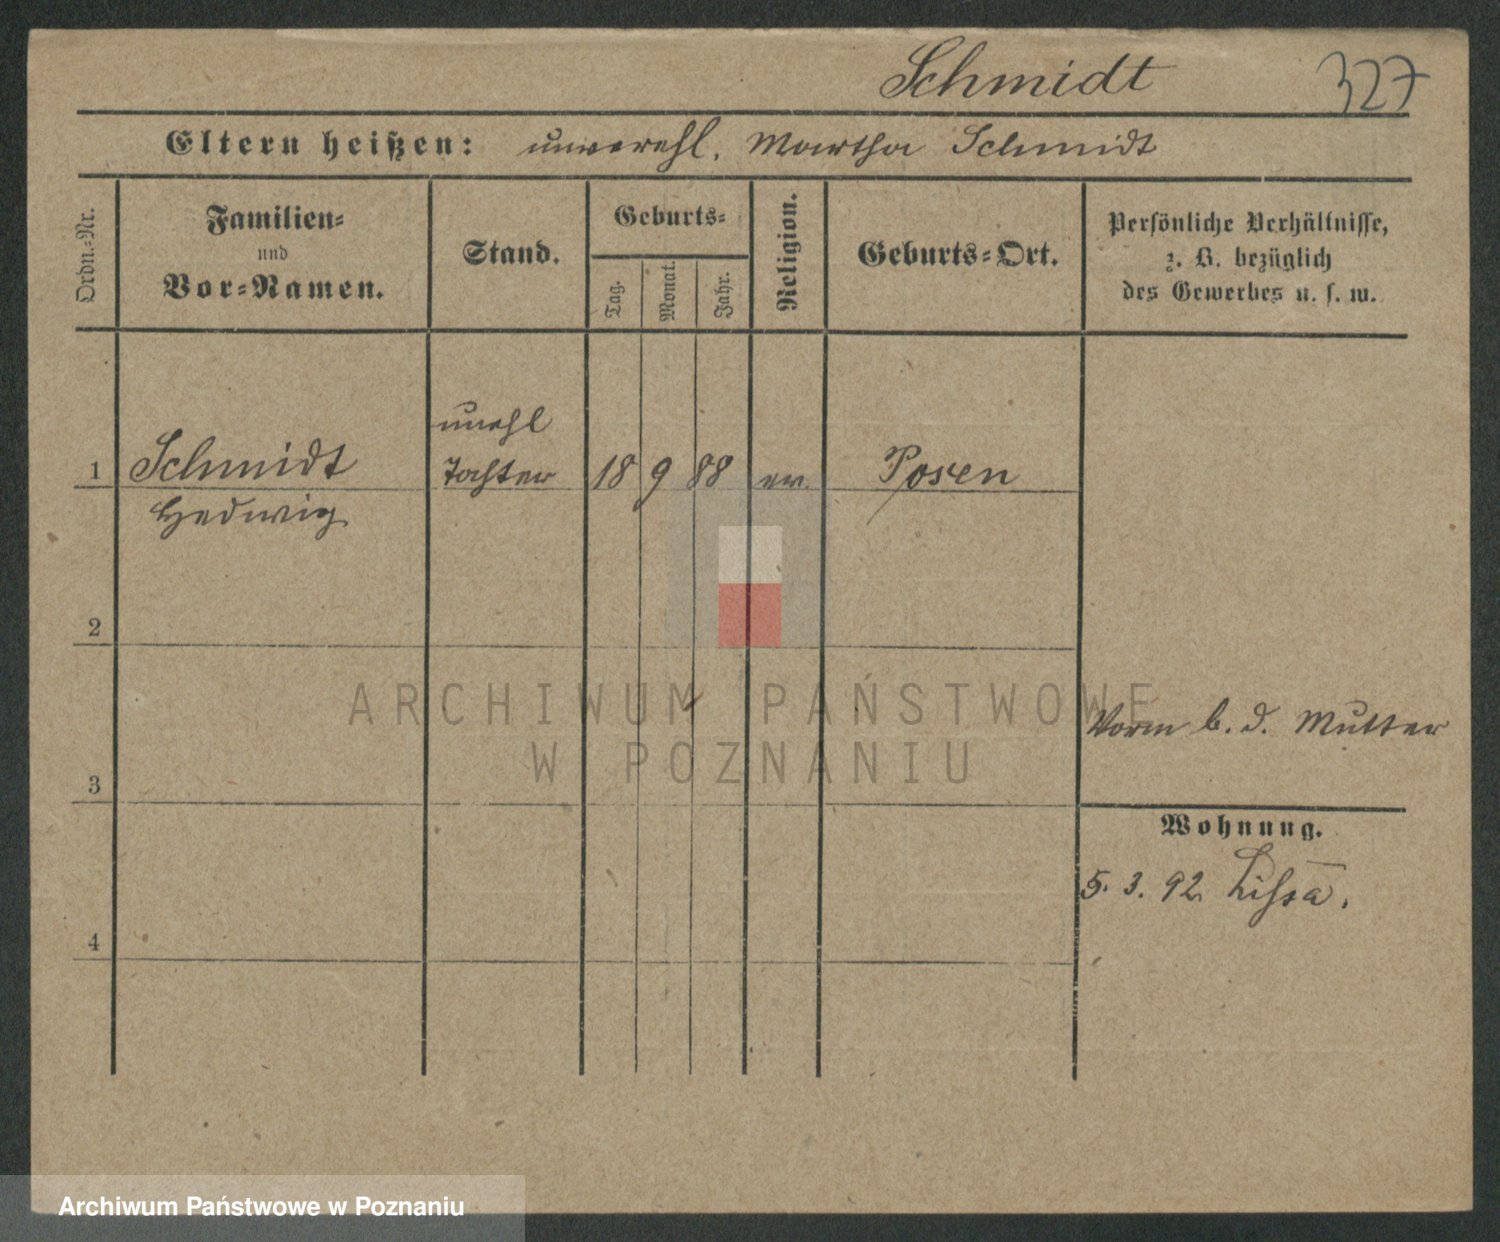 Schmidt 327
Eltern heißen: unverehl. Martha Schmidt
Ordn.=Nr.
Familien=
und
Vor=Namen.
Stand.
Geburts=
Tag.
Monat.
Jahr.
Religion.
Geburts=Ort.
Persönliche Verhältnisse,
z. B. bezüglich
des Gewerbes u. s. w.
unehl
1 Schmidt Tochter 18 9 88 ev. Posen
Hedwig
2
ARCHIWUM PAŃSTWOWE
W POZNANIU
b. d. Mutter
3
Wohnung.
5. 3. 92 Lissa.
4
Archiwum Państwowe w Poznaniu